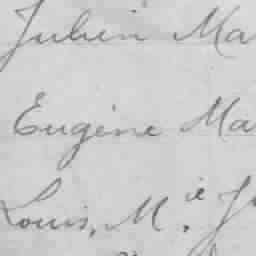 Julien Ma
Eugène Ma
Louis, M.ie J